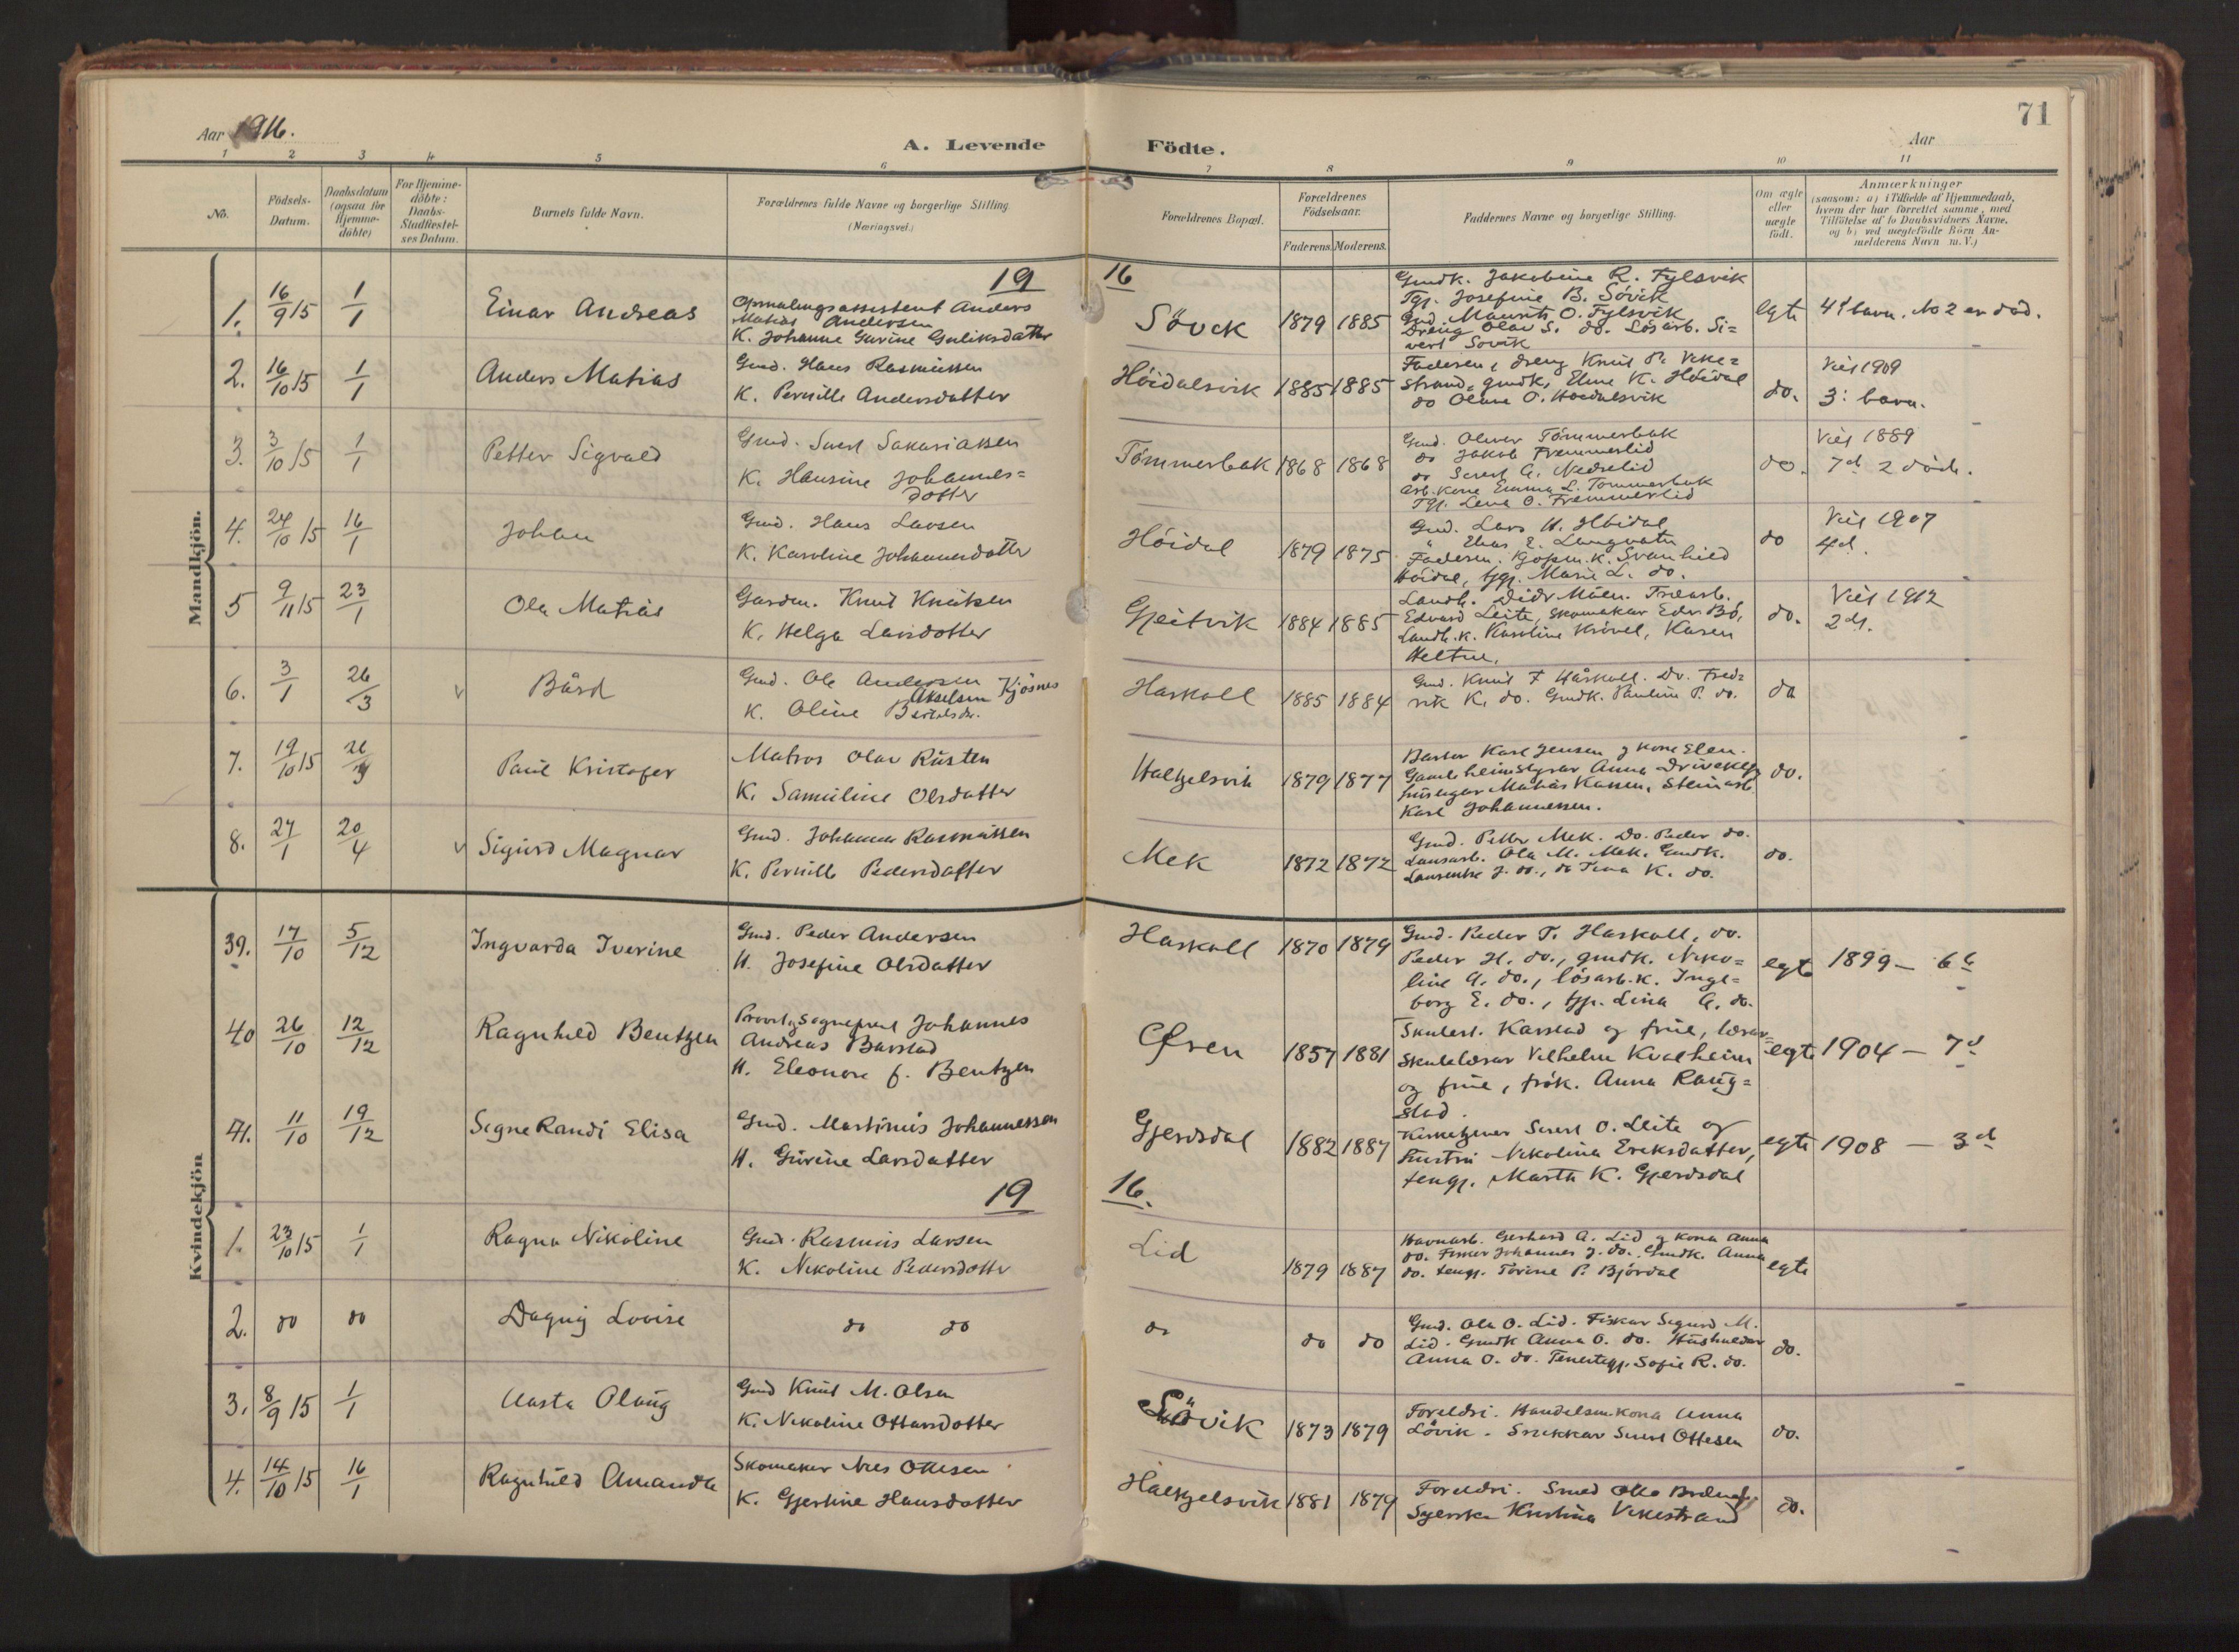 71
Aar 1916.
A. Levende Födte.
Aar
1 2 3 4 5 6 7 8 9 10 11
No.
Födsels-Datum.
Daabsdatum (ogsaa för Hjemme-döbte)
For Hjemme-döbte: Daabs-Stadfæstel-ses Datum.
Barnets fulde Navn.
Forældrenes fulde Navne og borgerlige Stilling. (Næringsvei.)
Forældrenes Bopæl.
Forældrenes Födselsaar.
Faderens. Moderens.
Faddernes Navne og borgerlige Stilling.
Om ægte eller uægte födt.
Anmærkninger
(saasom: a) i Tilfælde af Hjemmedaab, hvem der har forrettet samme, med Tilföielse af to Daabsvidners Navne, og b) ved uægtefödte Börn An-melderens Navn m. V.)
Mandkjön.
19 16
1. 16/9 15 1/1 Einar Andreas
Opmalingsassistent Anders
Matias Andersen
K. Johanne Gurine Guliksdatter
Sövik 1879 1885
Gmdk. Jakobine R. Fylsvik
Tgj. Josefine B. Sövik
Gmd. Maurits O. Fylsvik
Dreng Olav S. do. Lösarb. Si=
vert Sovik
egte 4d barn. No 2 er död.
2. 16/10 15 1/1 Anders Matias
Gmd. Hans Rasmussen
K. Pernille Andersdatter
Höidalsvik 1885 1885
Faderen, dreng Knut P. Vike=
strand, gmdk, Eline K. Höidal
do Oline O. Hoidalsvik
do.
Viet 1909
3: barn.
3. 3/10 15 1/1 Petter Sigvald
Gmd. Sivert Sakariassen
K. Hansine Johannes=
dotter
Tömmerbak 1868 1868
Gmd. Oliver Tömmerbak
do Jakob Fremmerlid
do Sivert A. Nedrelid
Arb. kone Emma L. Tommerbak
Tgj. Lena O. Fremmerlid
do.
Viet 1889
7d 2 döde.
4. 24/10 15 16/1 Johan
Gmd. Hans Larsen
K. Karoline Johannesdatter
Höidal 1879 1875
Gmd. Lars H. Höidal
" Elias E. Langvatn
Faderen. Kjöpm. k. Svanhild
Höidal, tgj. Marie L. do.
do
Viet 1907
4d.
5 9/11 15 23/1 Ola Matias
Gardm. Knut Knutsen
K. Helga Larsdotter
Gjeitvik 1884 1885
Landh. Didr Måen. Trearb.
Edvard Leite, skomakar Edv Bö,
Landh. k. Karoline Krövel, Karen
Heltne.
do.
Viet 1912
2det.
6. 3/1 26/3 v Bård
Gmd. Ole Andersen
Akselsen Kjösnes
K. Oline Bertelsdtr.
Haskoll 1885 1884
Gmd. Knut F Håskoll. Do. Fred=
rik K. do. Gmdk. Pauline P. do.
do
7. 19/10 15 26/3 Paul Kristofer
Matros Olav Rusten
K. Samuline Olsdatter
Halkjelsvik 1879 1877
Barber Karl Jensen og kone Elen.
Gamleheimstyrar Anna Driveklepp
husegar Matias Kaasen, Steinarb.
Karl Johannessen.
do.
8. 27/1 20/4 v Sigurd Magnar
Gmd. Johannes Rasmussen
K. Pernille Pedersdatter
Mek 1872 1872
Gmd. Petter Mek. Do. Peder do.
Lausarb. Ola M. Mek. Gmdk.
Laurentse J. do., do Tina K. do.
do.
Kvindekjön
39. 17/10 5/12 Ingvarda Iverine
Gmd. Peder Andersen
H. Josefine Olsdatter
Haskoll 1870 1879
Gmd. Peder T. Haskoll, do.
Peder H. do., gmdk. Niko=
line A. do., lösarb. k. Inge=
borg E. do., tjp. Lina A. do.
egte 1899 — 6te
40 26/10 12/12 Ragnhild Bentzen
Provst, Sogneprest Johannes
Andreas Barstad
H. Eleonore f. Bentzen
Øren 1857 1881
Skulest. Karstad og frue, lærar=
Skulelærar Vilhelm Kvalheim
og frue, frök. Anna Raug=
stad.
egte 1904 — 7d
41. 11/10 19/12 Signe Randi Elisa
Gmd. Martinus Johannessen
H. Gurine Larsdatter
Gjerdsdal 1882 1887
Kirketjener Sivert O. Leite og
hustru Nikolina Eriksdatter,
tengj. Marta K. Gjerdsdal
egte 1908 — 3d
19 16.
1. 23/10 15 1/1 Ragna Nikoline
Gmd. Rasmus Larsen
K. Nikoline Pedersdotter
Lid 1879 1887
Havnarb. Gerhard A. Lid og kona Anna
do. Fisker Johannes J. do. Gmdk. Anna
do. tengj. Torine P. Björdal
egte
2. do do Dagny Lovise
do do
do do do
Gmd. Ola O. Lid. Fiskar Sigurd M.
Lid. Gmdk Anna O. do. Husholdar
Anna O. do. Tenestegj. Sofie R. do.
do.
3. 8/9 15 1/1 Aasta Olaug
Gmd Knut M. Olsen
K. Nikoline Ottarsdotter
Lövik 1873 1879
Foreldri. Handelsm.kona Anna
Lövik. Snikkar Sivert Ottesen
do.
4. 14/10 15 16/1 Ragnhild Amanda
Skomaker Nils Ottesen
K. Gjertine Hansdatter
Halkjelsvik 1881 1879
Foreldri. Smed Otto
Syerske Kristina Vikestrand
do.